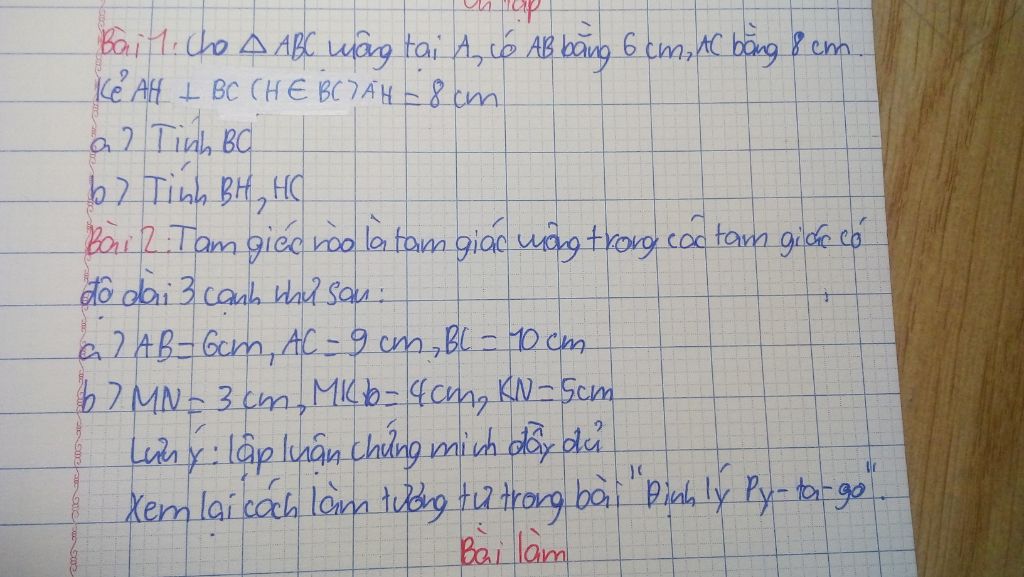 Ôn tập
Bài 1: Cho △ ABC vuông tại A, có AB bằng 6 cm, AC bằng 8 cm.
Kẻ AH ⊥ BC (H ∈ BC) AH = 8 cm
a) Tính BC
b) Tính BH, HC
Bài 2: Tam giác nào là tam giác vuông trong các tam giác có
độ dài 3 cạnh như sau:
a) AB = 6cm, AC = 9 cm, BC = 10 cm
b) MN = 3 cm, MKb = 4cm, KN = 5cm
Lưu ý: lập luận chứng minh đầy đủ
Xem lại cách làm tương tự trong bài "Định lý Py-ta-go".
Bài làm